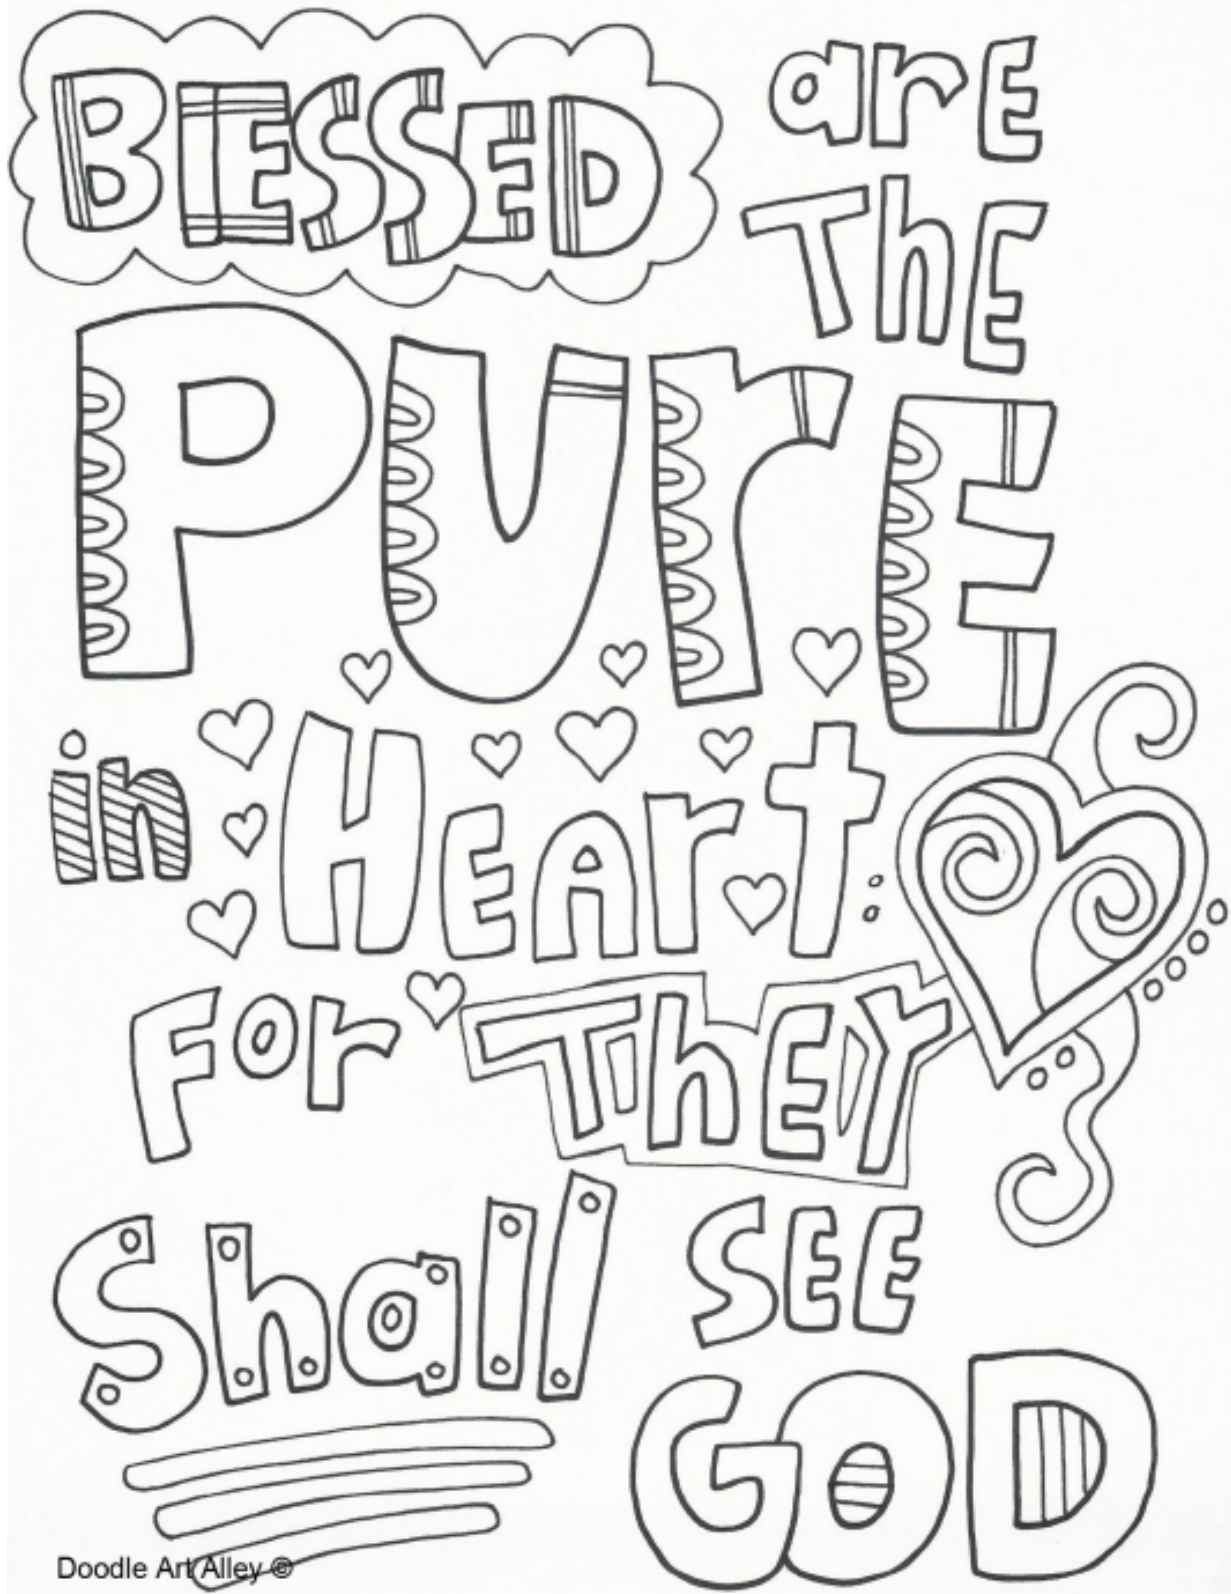 BLESSED are
The
Pure
in Heart:
For They
Shall see
GOD
Doodle Art Alley ©